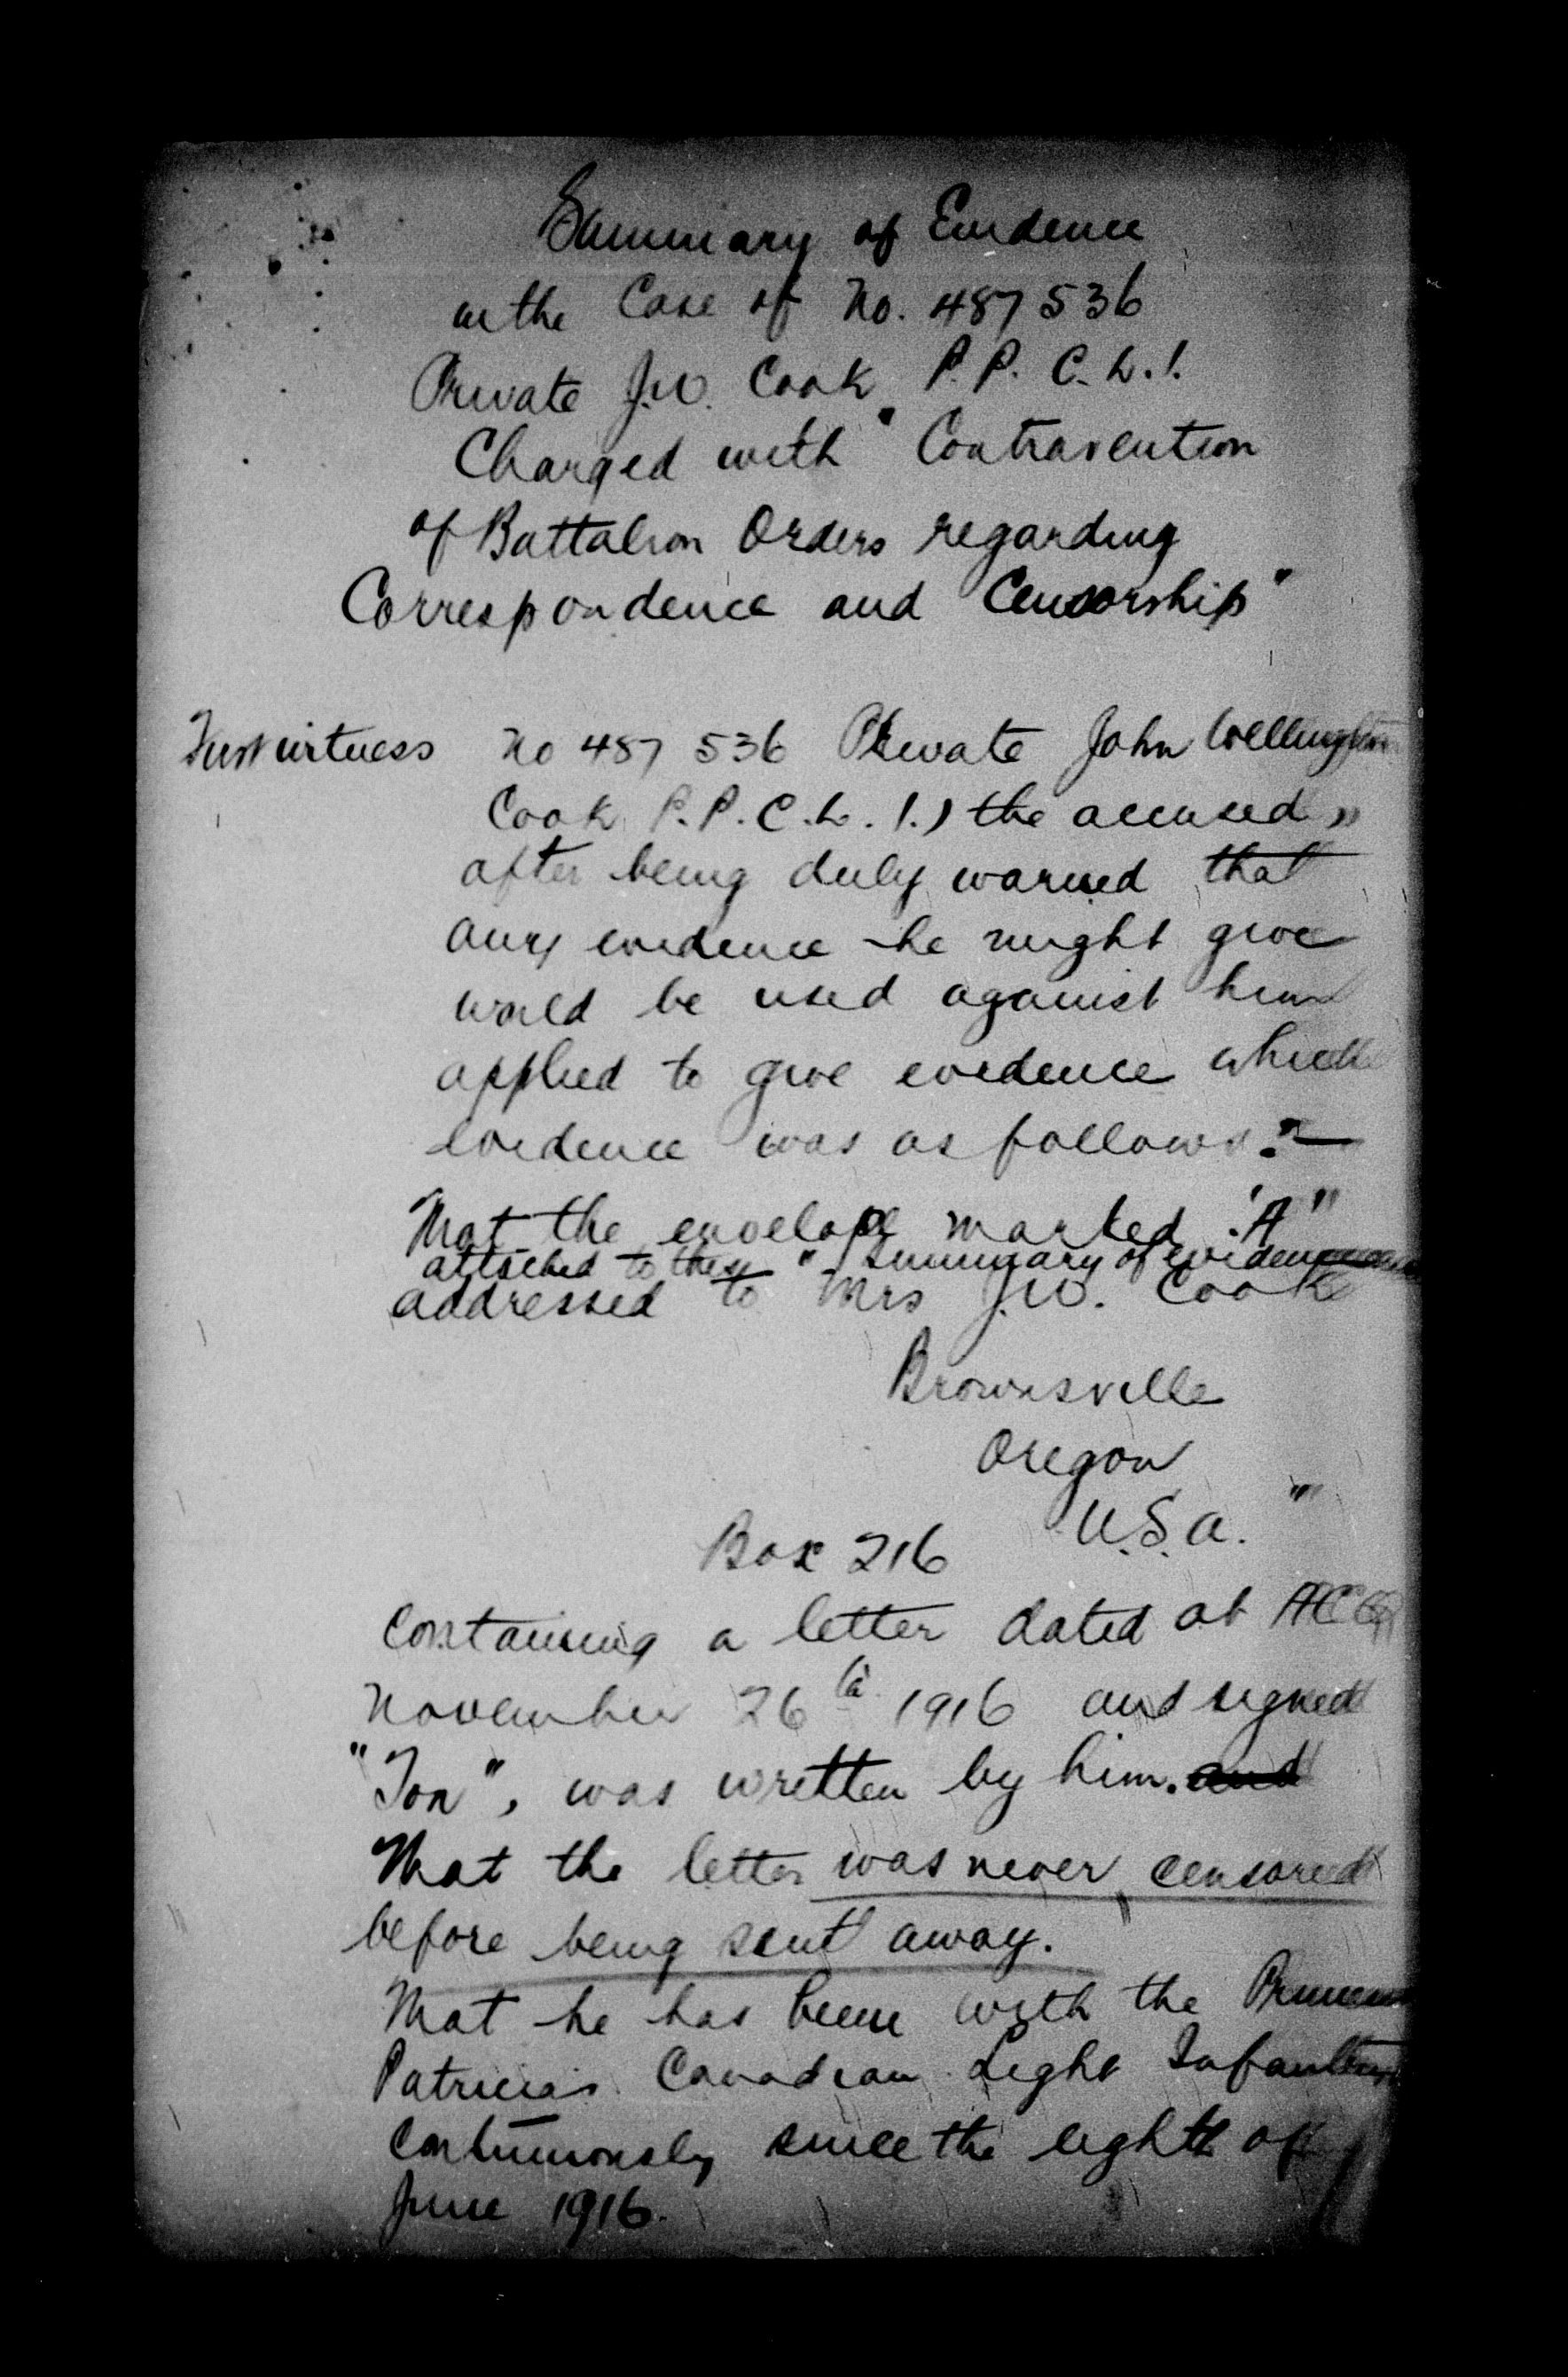 Summary of Evidence
in the Case of No. 487536
Private J.W. Cook P.P.C.L.I.
Charged with "Contravention
of Battalion Orders regarding
Correspondence and Censorship"
First witness No 487 536 Private John Wellington
Cook P.P.C.L.I.) the accused,,
after being duly warned that
any evidence he might give
would be used against him
applied to give evidence which
evidence was as follows:-
That the envelope marked "A"
attached to these "Summary of evidence
addressed to Mrs J.W. Cook
Brownsville
Oregon
U.S.A."
Box 216
Containing a letter dated at
November 26th 1916 and signed
"Jon", was written by him. and
That the letter was never censored
before being sent away.
That he has been with the Princess
Patricias Canadian Light Infantry
Continuously since the eighth of
June 1916.